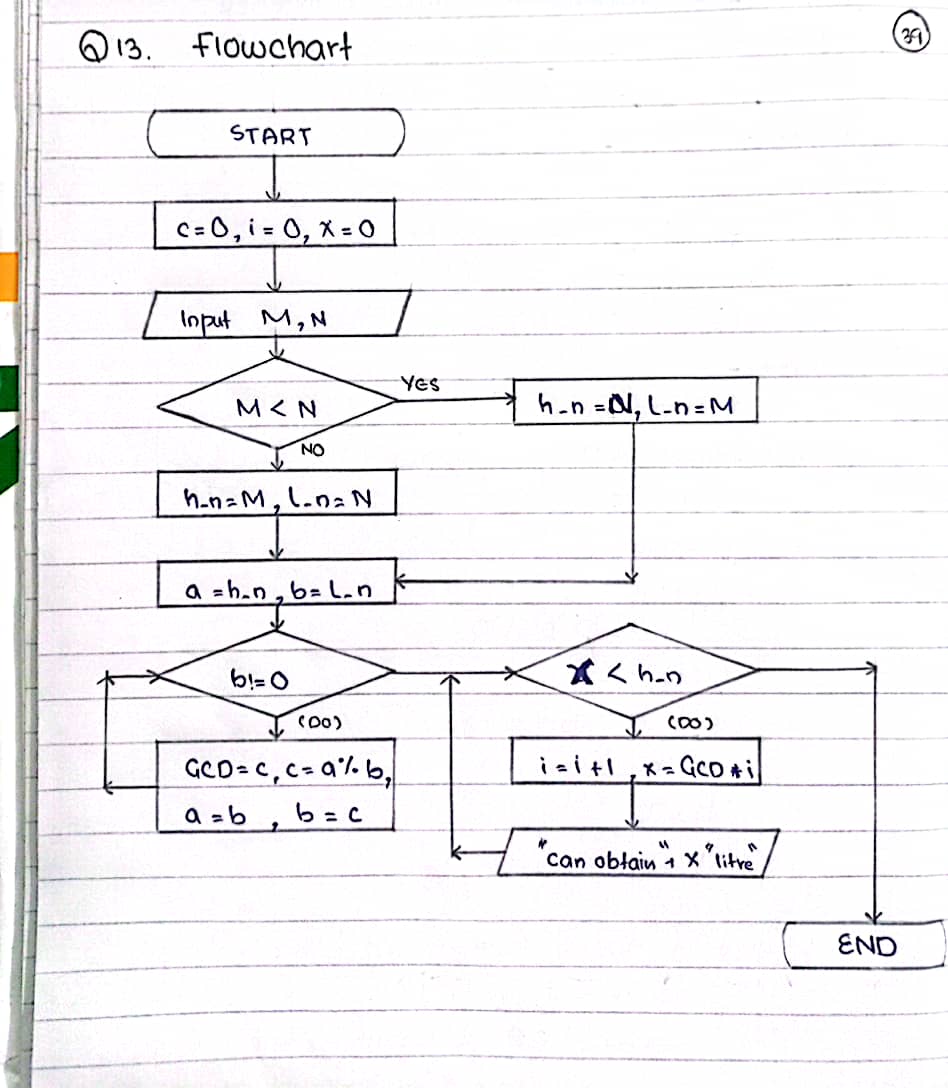 Q13. Flowchart
39
START
c=0, i=0, x=0
Input M, N
M < N
YES
h_n = N, L_n = M
NO
h_n = M, L_n = N
a = h_n, b = L_n
b!=0
X < h_n
(DO)
(DO)
GCD = c, c = a % b,
a = b, b = c
i = i +1, x = GCD * i
"can obtain" + X "litre"
END